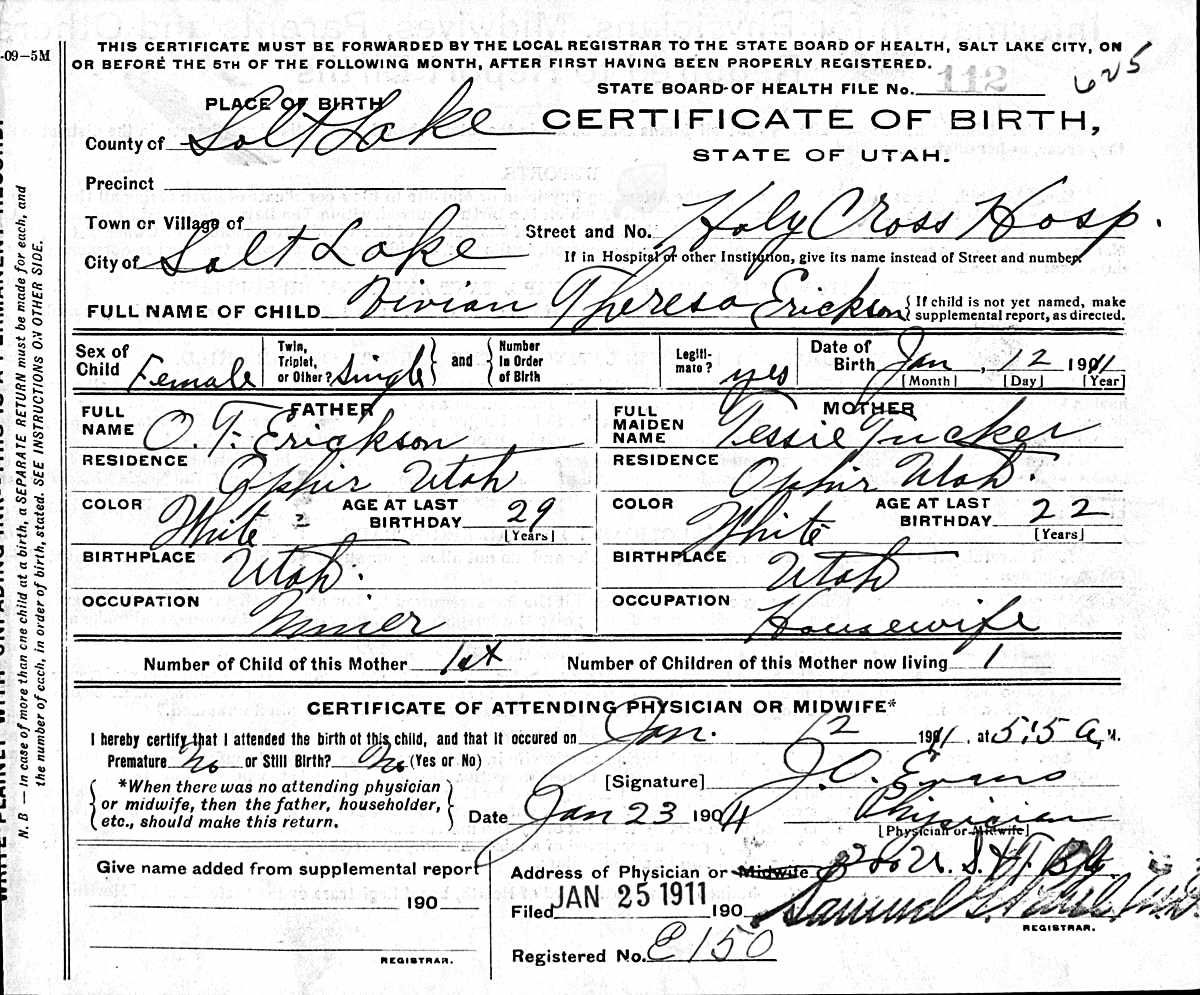 -09-5M
THIS CERTIFICATE MUST BE FORWARDED BY THE LOCAL REGISTRAR TO THE STATE BOARD OF HEALTH, SALT LAKE CITY, ON
OR BEFORE THE 5TH OF THE FOLLOWING MONTH, AFTER FIRST HAVING BEEN PROPERLY REGISTERED.
625
STATE BOARD OF HEALTH FILE No. 112
PLACE OF BIRTH
CERTIFICATE OF BIRTH,
STATE OF UTAH.
County of Salt Lake
Precinct
Town or Village of
Street and No. Holy Cross Hosp.
City of Salt Lake
If in Hospital or other Institution, give its name instead of Street and number.
FULL NAME OF CHILD Vivian Theresa Erickson { If child is not yet named, make supplemental report, as directed.
Sex of Child Female
Twin, Triplet, or Other? Single } and { Number in Order of Birth
Legitimate? yes
Date of Birth Jan, 12 1911
[Month] [Day] [Year]
FATHER
FULL NAME O. T. Erickson
RESIDENCE Ophir Utah
COLOR White AGE AT LAST BIRTHDAY 29 [Years]
BIRTHPLACE Utah.
OCCUPATION Miner
MOTHER
FULL MAIDEN NAME Tessie Tucker
RESIDENCE Ophir Utah.
COLOR White AGE AT LAST BIRTHDAY 22 [Years]
BIRTHPLACE Utah
OCCUPATION Housewife
Number of Child of this Mother 1st Number of Children of this Mother now living 1
CERTIFICATE OF ATTENDING PHYSICIAN OR MIDWIFE*
I hereby certify that I attended the birth ot this child, and that it occured on Jan. 12 1911, at 5:5 a, M.
Premature No or Still Birth? No (Yes or No)
{ *When there was no attending physician or midwife, then the father, householder, etc., should make this return. }
[Signature] J. O. Evans
Date Jan 23 1911 Physician
[Physician or Midwife]
Give name added from supplemental report
190
REGISTRAR.
Address of Physician or Midwife
Filed JAN 25 1911 190
Samuel G. Paul
REGISTRAR.
Registered No. E150
N. B — In case of more than one child at a birth, a SEPARATE RETURN must be made for each, and
the number of each, in order of birth, stated. SEE INSTRUCTIONS ON OTHER SIDE.